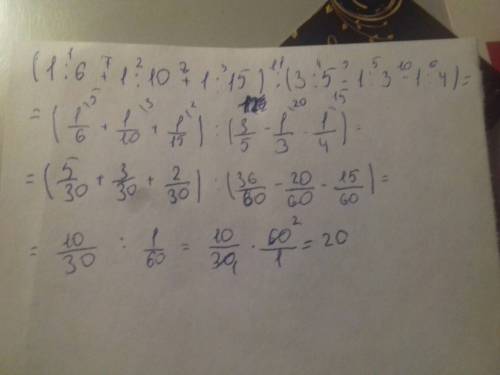 (1:6 + 1:10 + 1:15) : (3:5 - 1:3 - 1:4) =
= (1/6 + 1/10 + 1/15) : (3/5 - 1/3 - 1/4) =
= (5/30 + 3/30 + 2/30) : (36/60 - 20/60 - 15/60) =
= 10/30 : 1/60 = 10/30 · 60/1 = 20